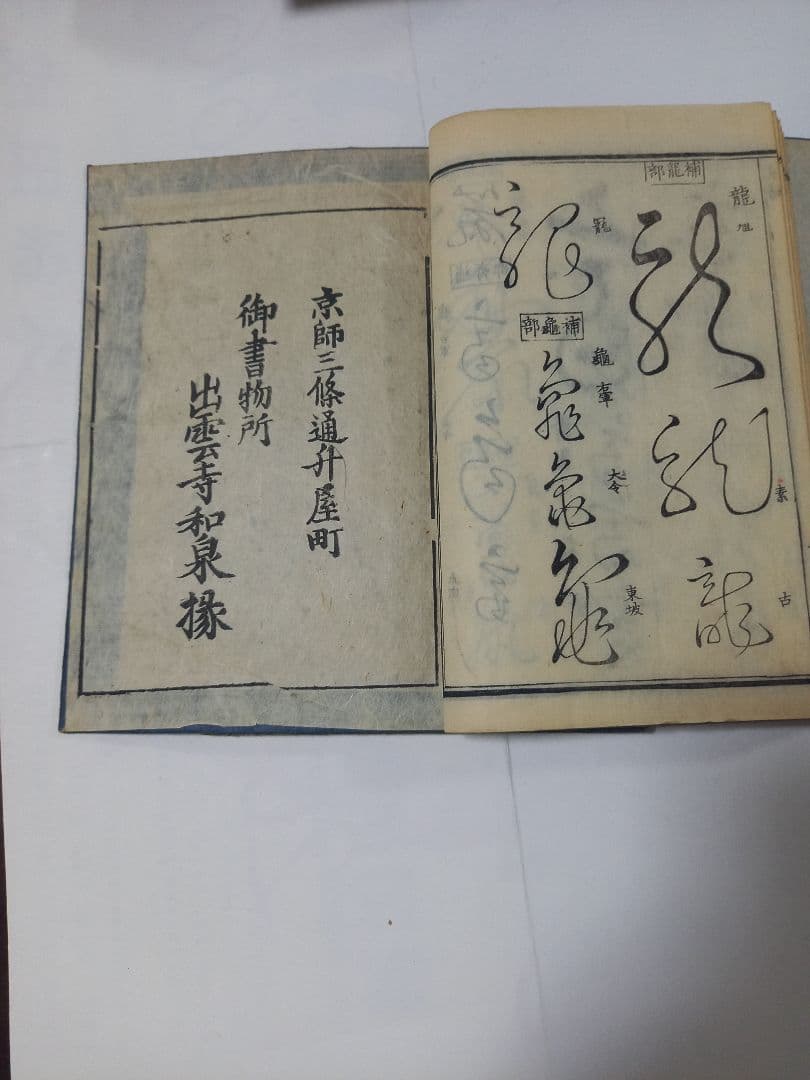 補龍部
龍 旭
龍
龍 素
龍 古
龍
補龜部
龜 草
龜
龜 大令
龜 東坡
京師三條通升屋町
御書物所
出雲寺和泉掾